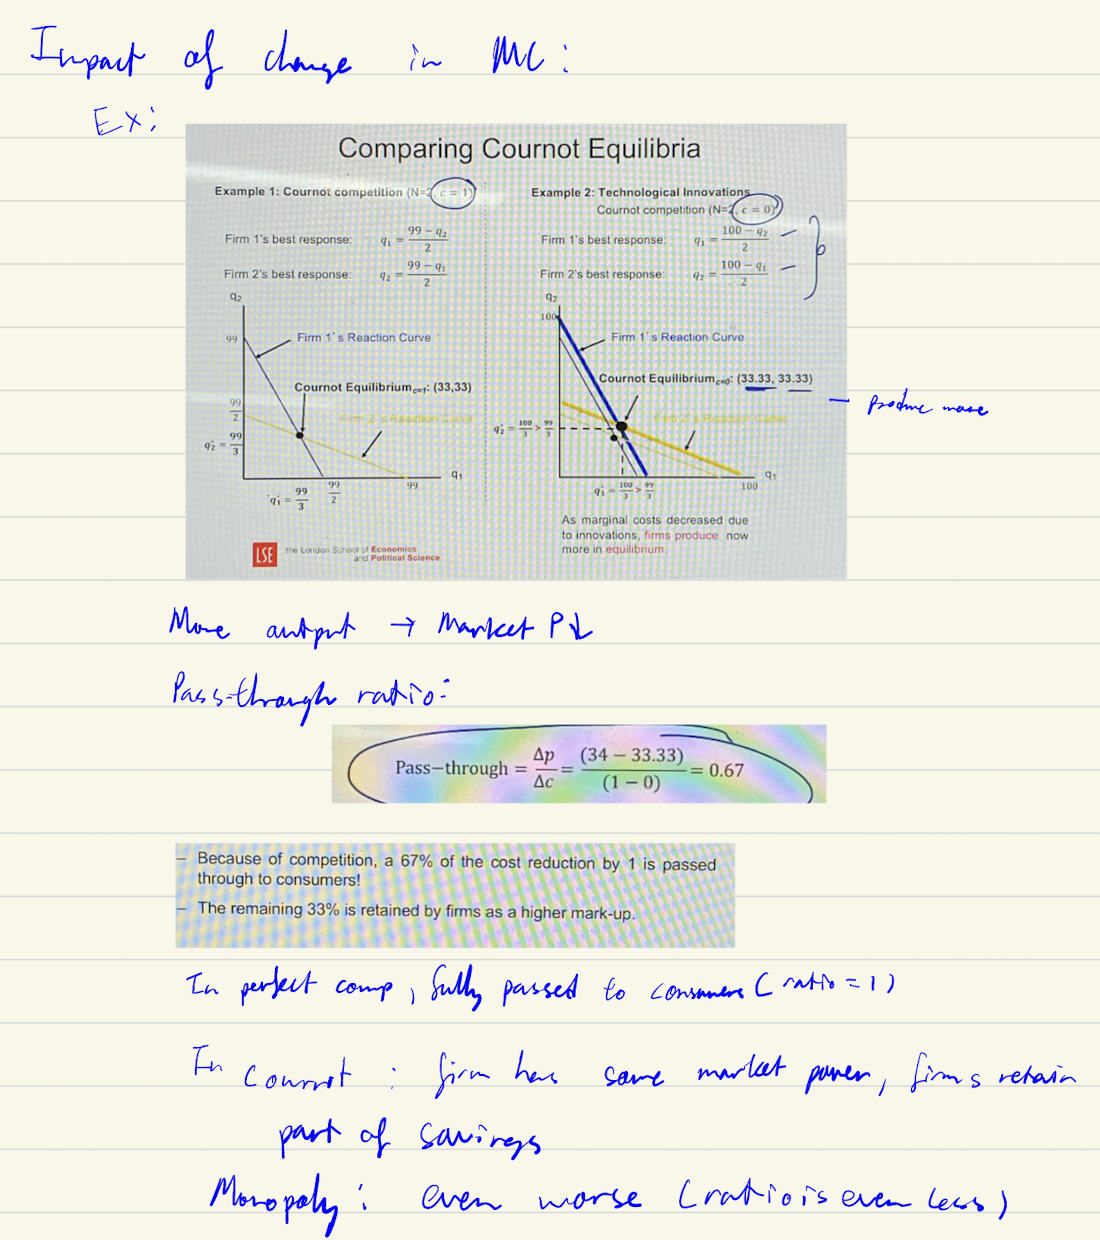 Impact of change in MC:
Ex:
Comparing Cournot Equilibria
Example 1: Cournot competition (N=2, c = 1)
Firm 1's best response: q₁ = (99 − q₂)/2
Firm 2's best response: q₂ = (99 − q₁)/2
q₂
99
Firm 1's Reaction Curve
Cournot Equilibrium c=1: (33,33)
99/2
Firm 2's Reaction Curve
q₂* = 99/3
q₁
q₁* = 99/3
99/2
99
LSE the London School of Economics and Political Science
Example 2: Technological Innovations
Cournot competition (N=2, c = 0)
Firm 1's best response: q₁ = (100 − q₂)/2
Firm 2's best response: q₂ = (100 − q₁)/2
q₂
100
Firm 1's Reaction Curve
Cournot Equilibrium c=0: (33.33, 33.33)
— produce more
Reaction Curve
q₂* = 100/3 > 99/3
q₁
q₁* = 100/3 > 99/3
100
As marginal costs decreased due
to innovations, firms produce now
more in equilibrium
More output → Market P↓
Pass-through ratio:
Pass−through = Δp/Δc = (34 − 33.33)/(1 − 0) = 0.67
– Because of competition, a 67% of the cost reduction by 1 is passed
through to consumers!
– The remaining 33% is retained by firms as a higher mark-up.
In perfect comp, fully passed to consumers (ratio = 1)
In Cournot : firm has some market power, firms retain
part of savings
Monopoly : even worse (ratio is even less)